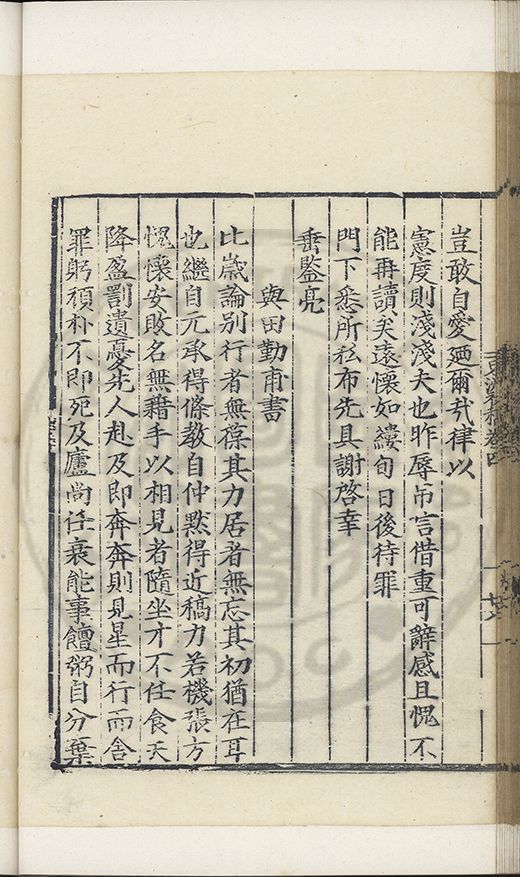 豈敢自愛廼爾我律以
憲度則淺淺夫也昨辱吊言借重可辭感且愧不
能再讀矣遠懷如縷旬日後待罪
門下悉所私布先具謝啓幸
垂鑒亮
與田勤甫書
比歲論別行者無葆其力居者無忘其初猶在耳
也繼自元承得條教自仲默得近稿力若機張方
愧懷安敗名無藉手以相見者隨坐才不任食天
降盈罰遺憂先人赴及即奔奔則見星而行而舍
罪躬頑朴不即死及廬尚任衰能事饘粥自分棄